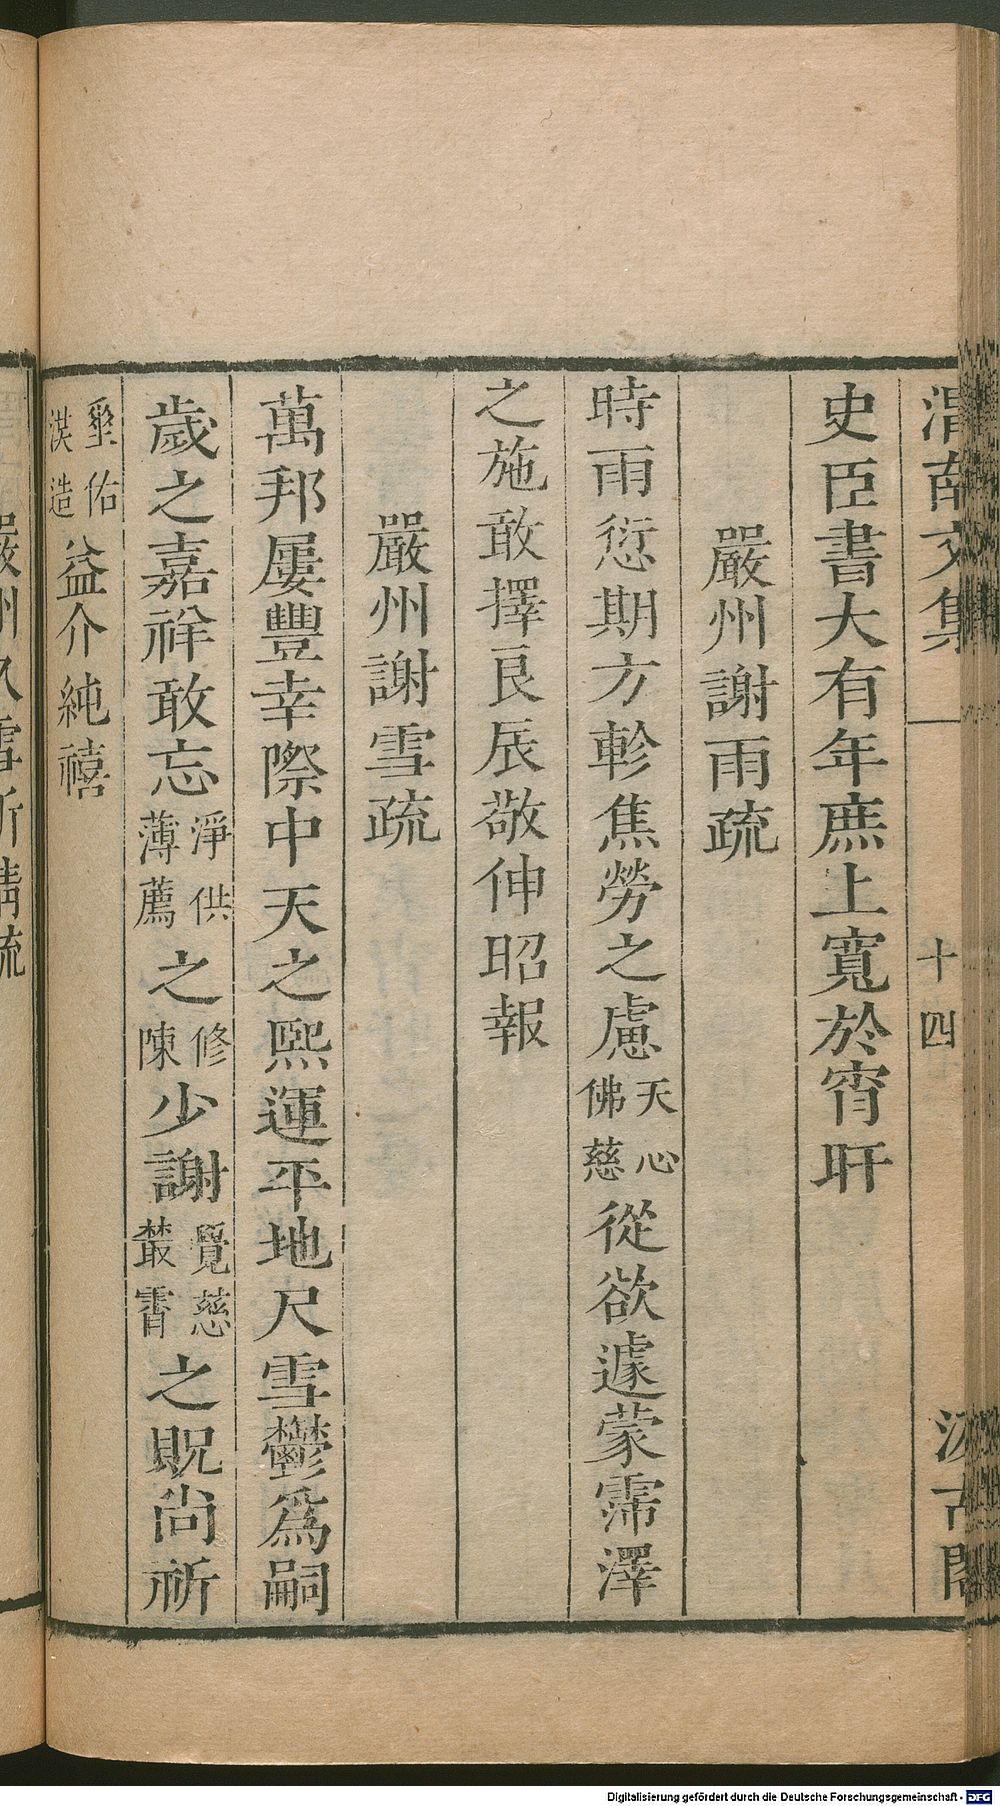 渭南文集 十四 汲古閣
史臣書大有年庶上寬於宵旰
嚴州謝雨疏
時雨愆期方軫焦勞之慮天心佛慈從欲遽蒙霈澤
之施敢擇良辰敬伸昭報
嚴州謝雪疏
萬邦屢豐幸際中天之熙運平地尺雪鬱為嗣
歲之嘉祥敢忘淨供薄薦之修陳少謝覺慈叢霄之貺尚祈
聖佑洪造益介純禧
Digitalisierung gefördert durch die Deutsche Forschungsgemeinschaft - DFG